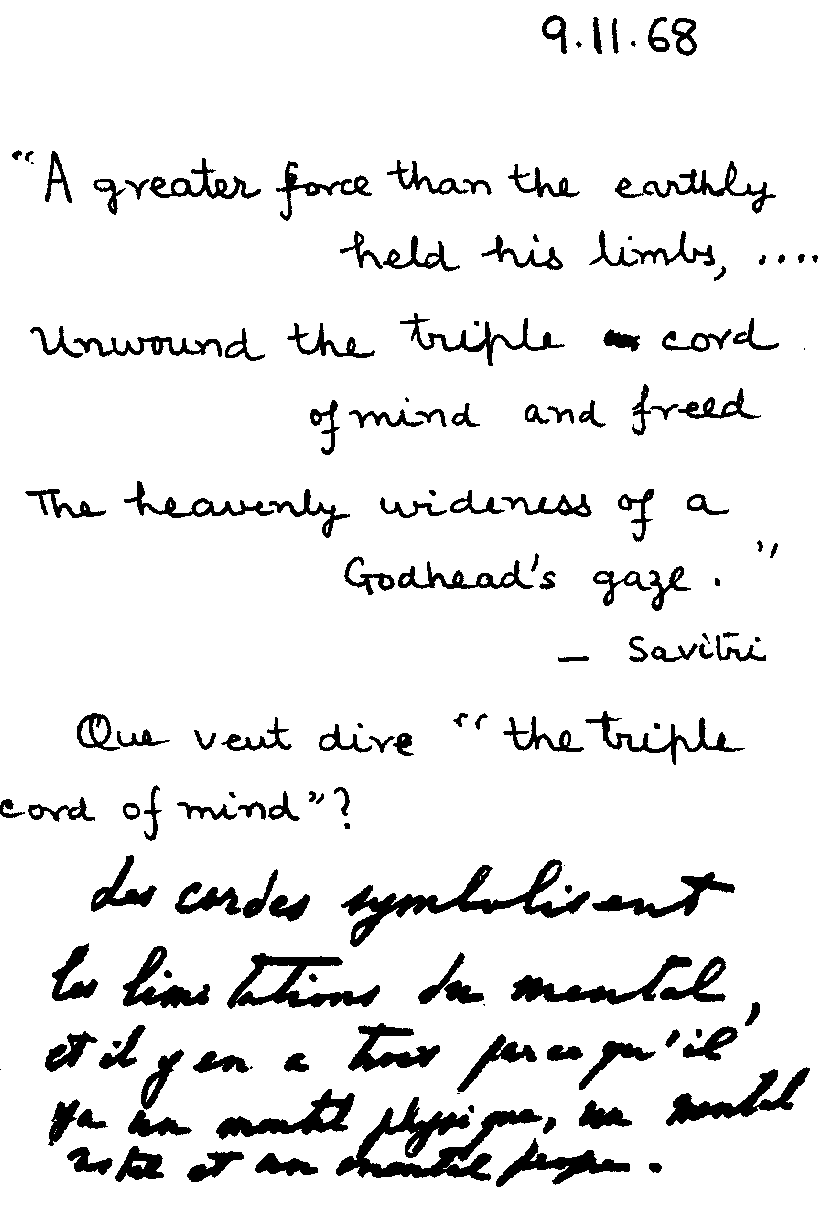 9.11.68
"A greater force than the earthly
held his limbs, ....
Unwound the triple cord
of mind and freed
The heavenly wideness of a
Godhead's gaze."
— Savitri
Que veut dire "the triple
cord of mind"?
Les cordes symbolisent
les limitations du mental,
et il y en a trois parce qu'il
y a un mental physique, un mental
vital et un mental propre.